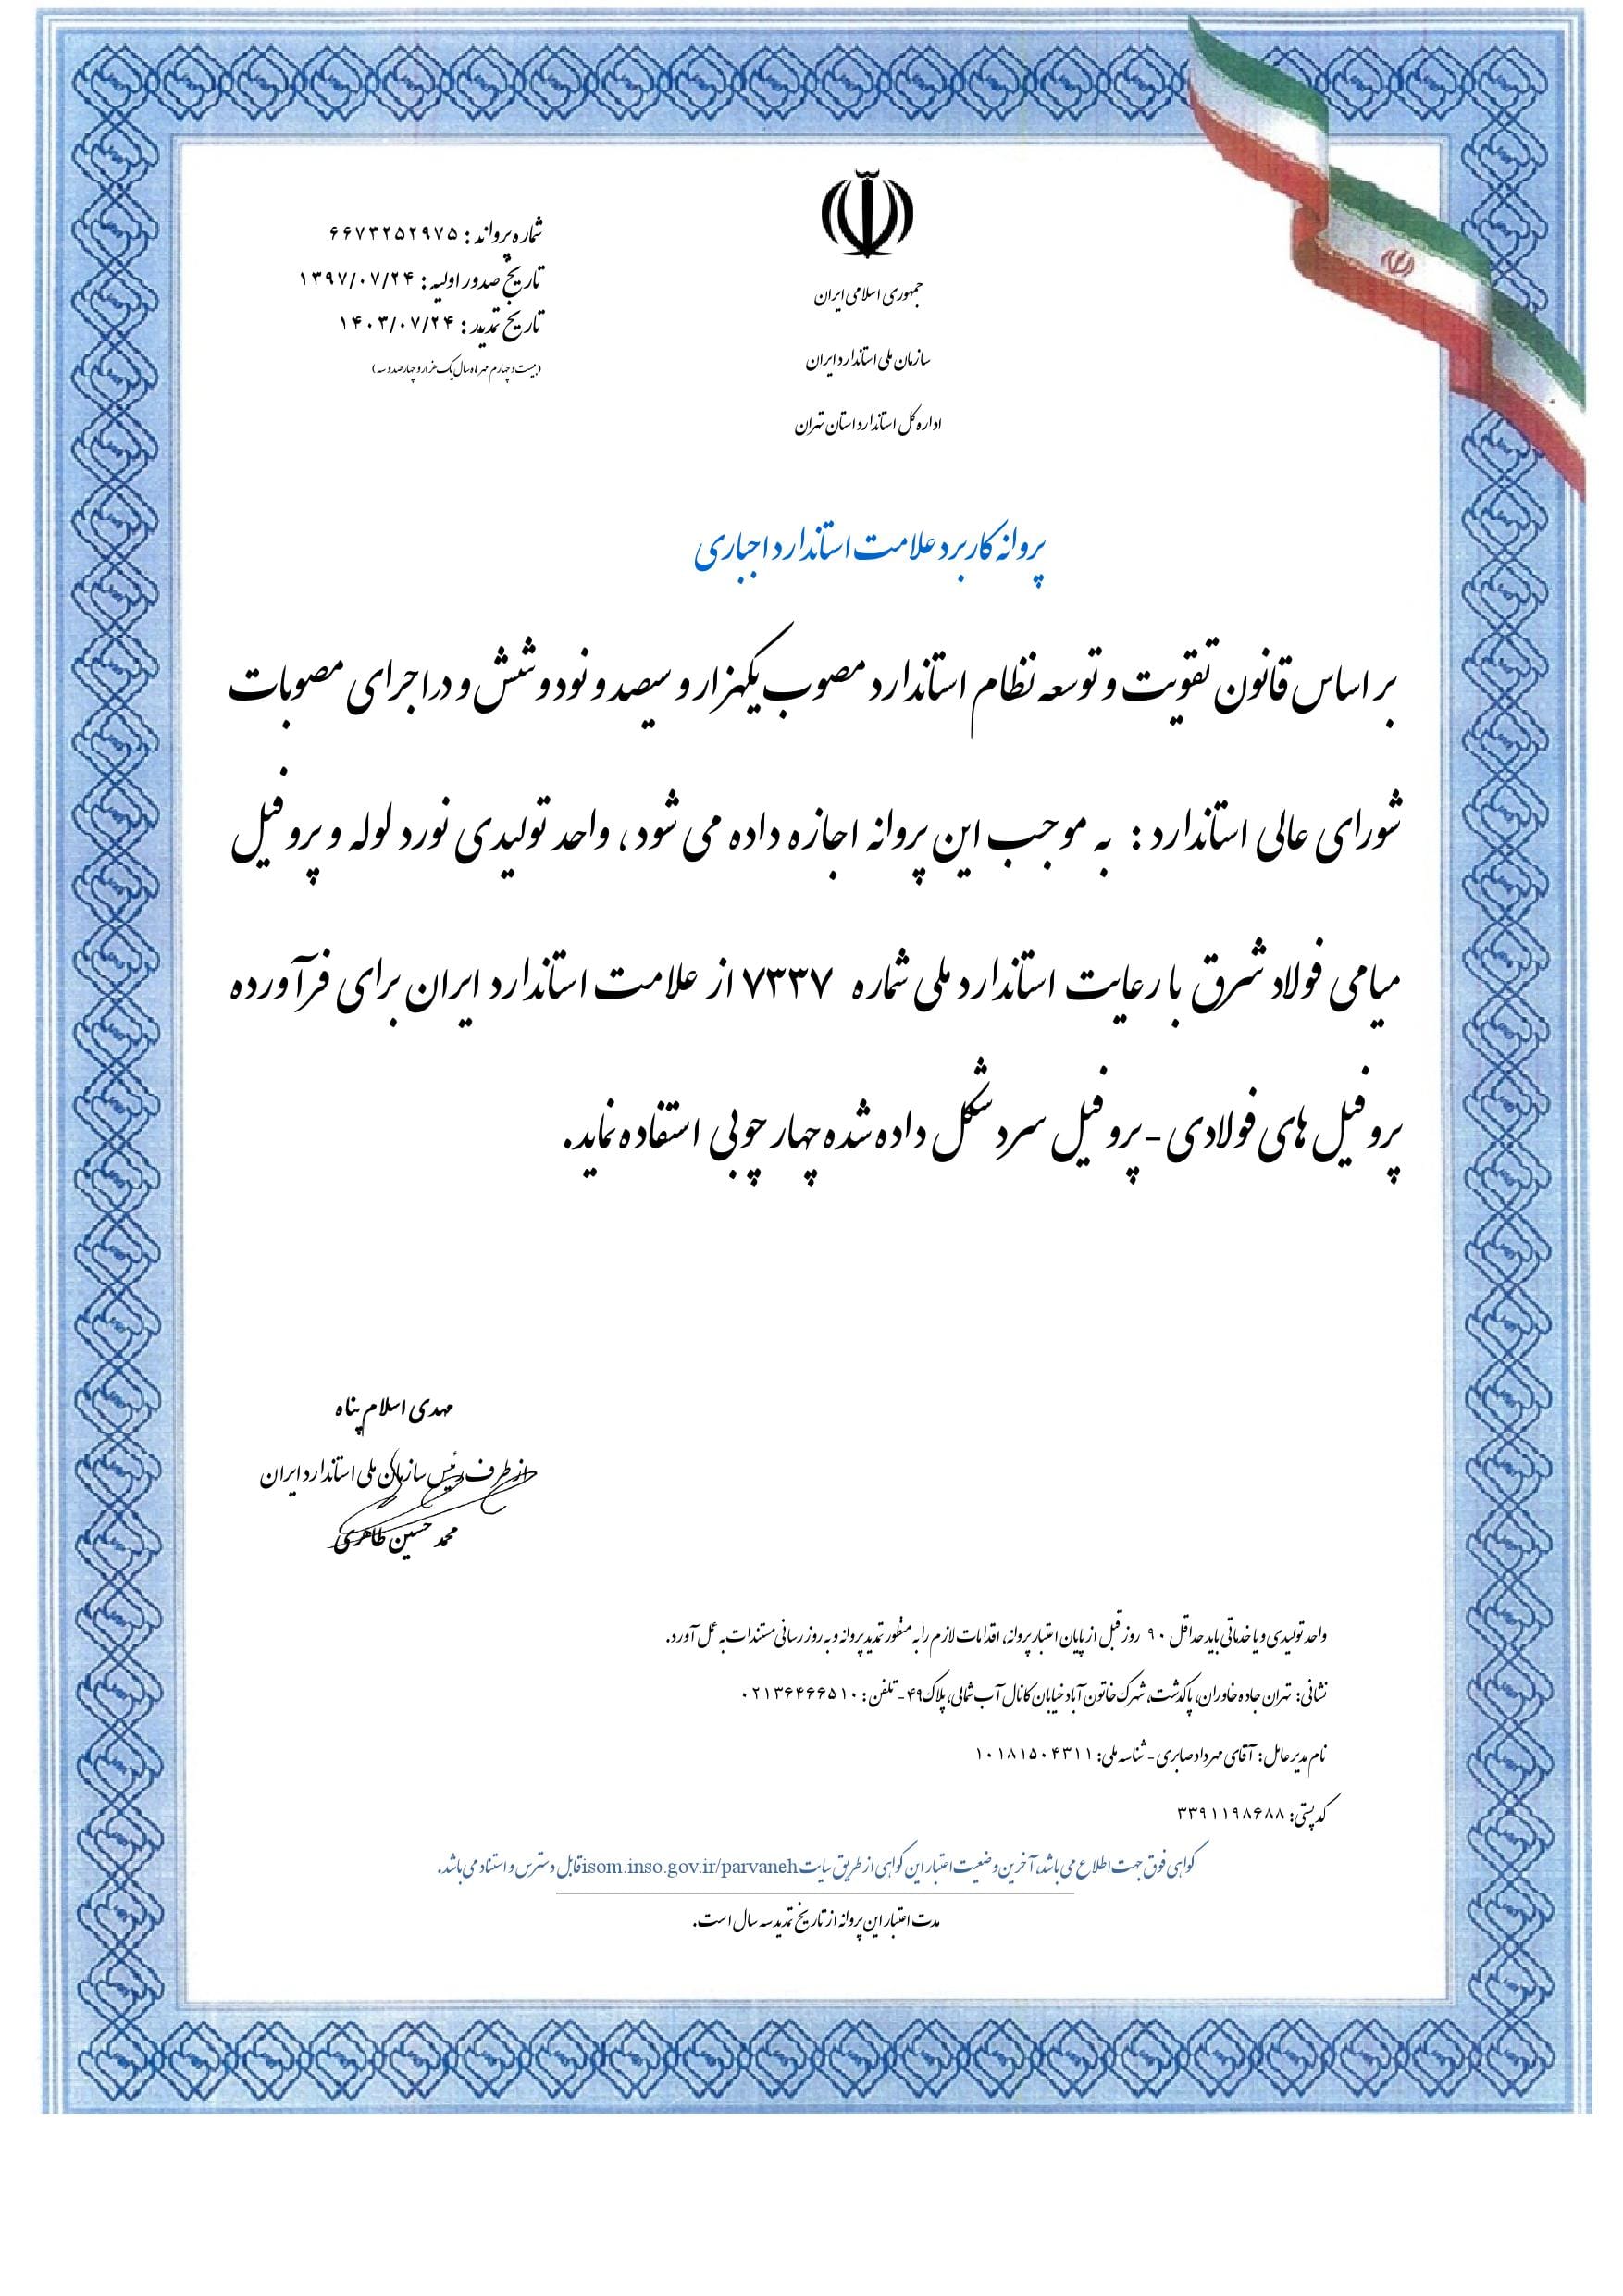 شماره پروانه : ۶۶۷۳۲۵۲۹۷۵
تاریخ صدور اولیه : ۱۳۹۷/۰۷/۲۴
تاریخ تمدید : ۱۴۰۳/۰۷/۲۴
(بیست و چهارم مهر ماه سال یک هزار و چهارصد و سه)
جمهوری اسلامی ایران
سازمان ملی استاندارد ایران
اداره کل استاندارد استان تهران
پروانه کاربرد علامت استاندارد اجباری
بر اساس قانون تقویت و توسعه نظام استاندارد مصوب یکهزار و سیصد و نود و شش و در اجرای مصوبات
شورای عالی استاندارد : به موجب این پروانه اجازه داده می شود، واحد تولیدی نورد لوله و پروفیل
میامی فولاد شرق با رعایت استاندارد ملی شماره ۷۳۳۷ از علامت استاندارد ایران برای فرآورده
پروفیل های فولادی - پروفیل سرد شکل داده شده چهار چوبی استفاده نماید.
مهدی اسلام پناه
از طرف رئیس سازمان ملی استاندارد ایران
محمد حسین طاهری
واحد تولیدی و یا خدماتی باید حداقل ۹۰ روز قبل از پایان اعتبار پروانه، اقدامات لازم را به منظور تمدید پروانه و به روز رسانی مستندات به عمل آورد.
نشانی: تهران جاده خاوران، پاکدشت، شهرک خاتون آباد خیابان کانال آب شمالی، پلاک ۴۹ - تلفن : ۰۲۱۳۶۴۶۶۵۱۰
نام مدیر عامل : آقای مهرداد صابری - شناسه ملی: ۱۰۱۸۱۵۰۴۳۱۱
کد پستی: ۳۳۹۱۱۹۸۶۸۸
گواهی فوق جهت اطلاع می باشد، آخرین وضعیت اعتبار این گواهی از طریق سایت isom.inso.gov.ir/parvaneh قابل دسترس و استناد می باشد.
مدت اعتبار این پروانه از تاریخ تمدید سه سال است.